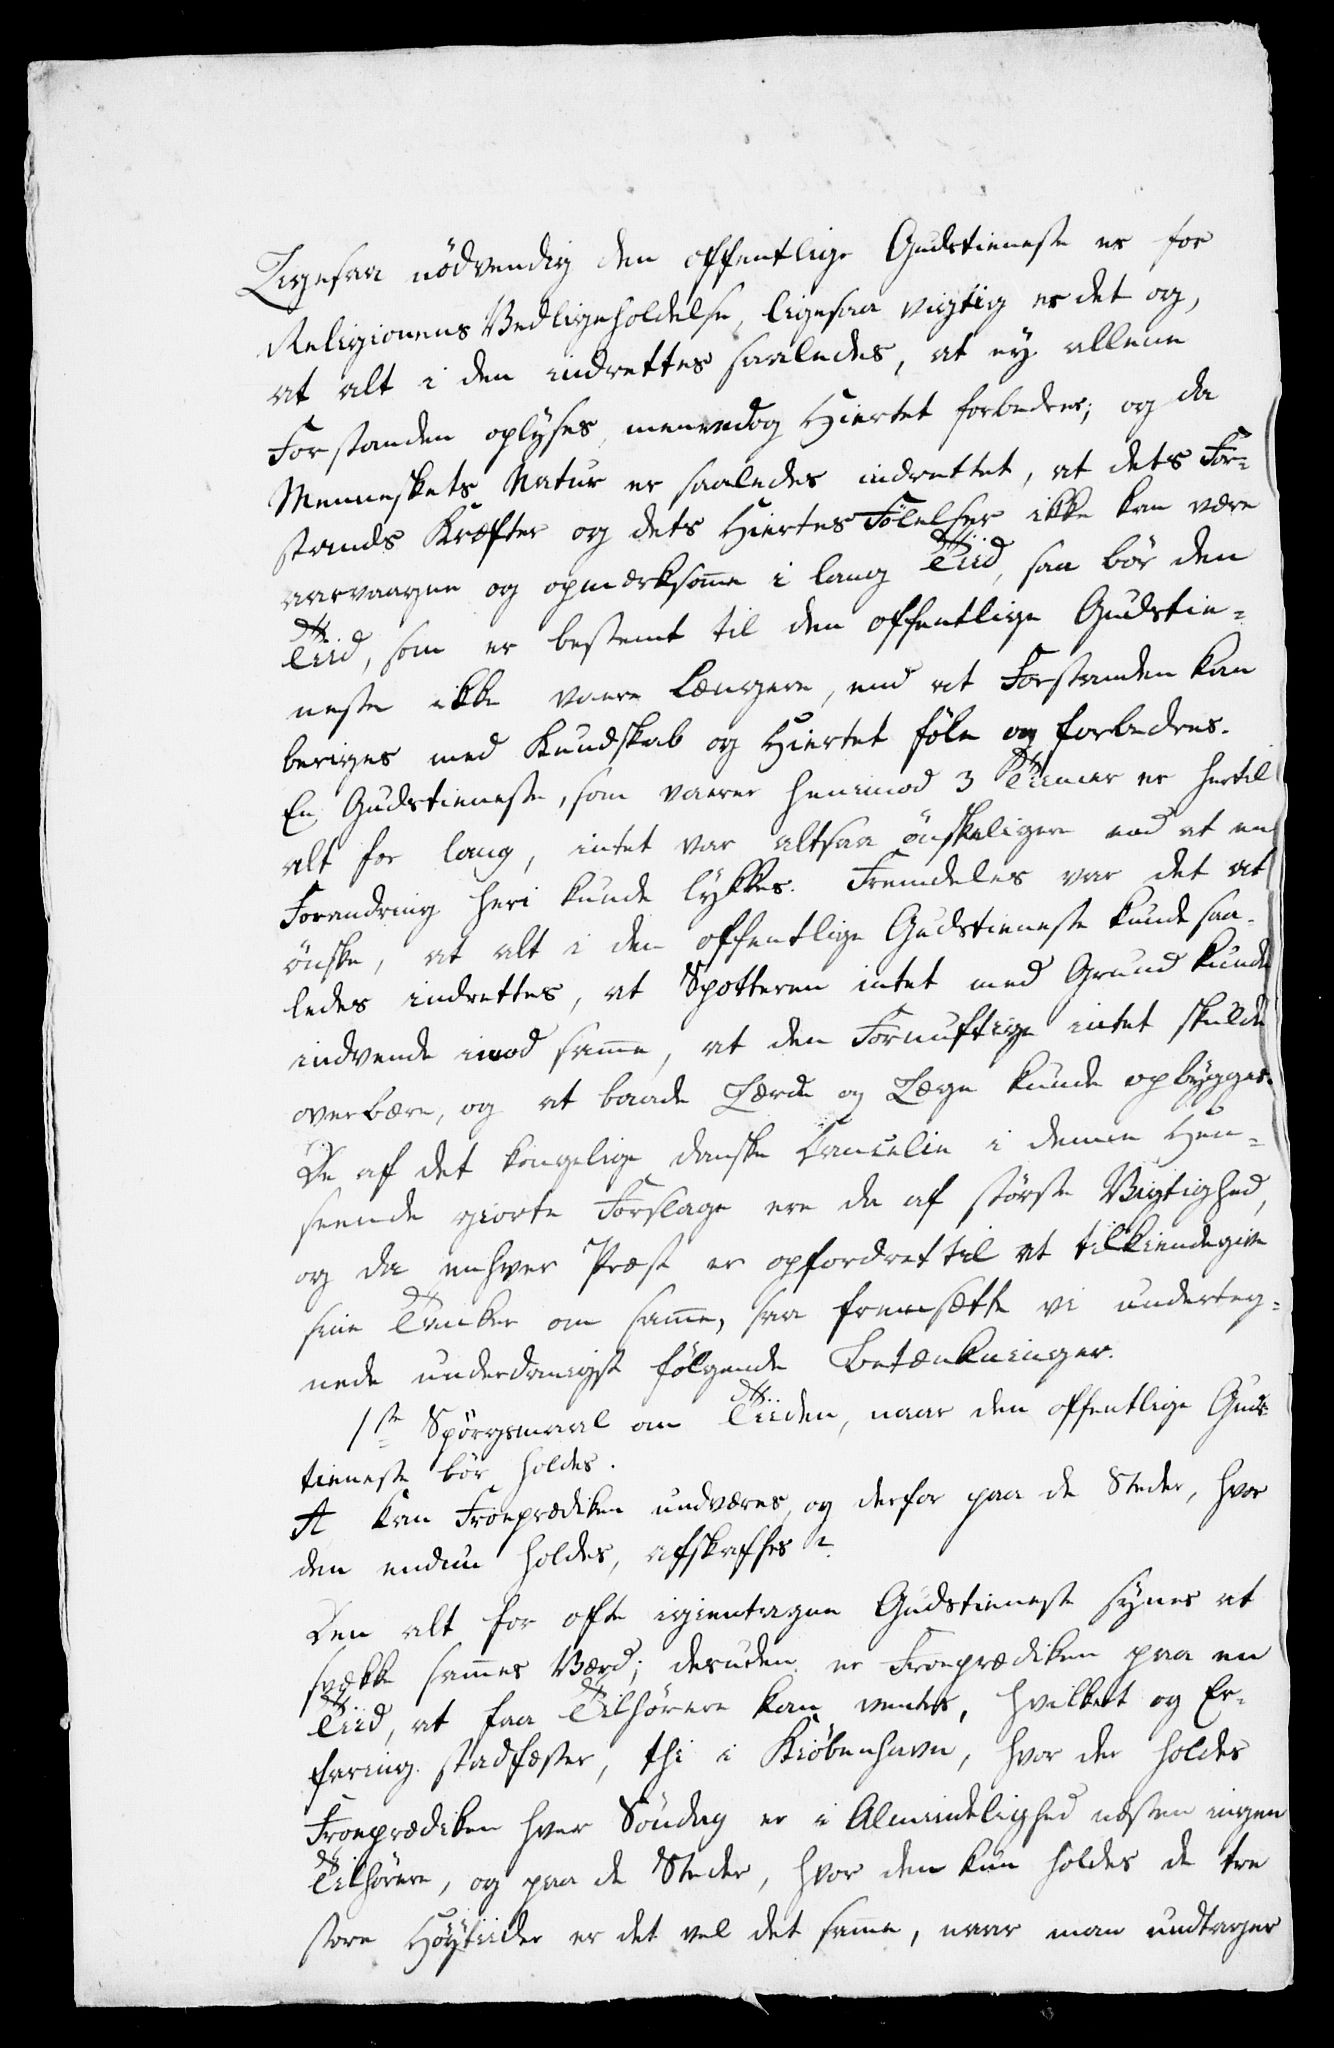 Ligesaa nödvendig den offentlige Gudstieneste er for
Religionens Vedligeholdelse, ligesaa vigtig er det og,
at alt i den indrettes saaledes, at ey allene
Forstanden oplyses, men endog Hiertet forbedres; og da
Menneskets Natur er saaledes indrettet, at dets For-
stands Kræfter og dets Hiertes Fölelser ikke kan være
aarvaagne og opmærksome i lang Tiid, saa bör den
Tiid, som er bestemt til den offentlige Gudstie-
neste ikke vaere længere, end at Forstanden kan
beriges med Kundskab og Hiertet föle og forbedres.
En Gudstieneste, som vaerer henimod 3 Tiimer er hertil
alt for lang, intet var altsaa önskeligere end at en
Forandring heri kunde lykkes. Fremdeles var det at
önske, at alt i den offentlige Gudstieneste kunde saa-
ledes indrettes, at Spotteren intet med Grund kunde
indvende imod same, at den Fornuftige intet skulde
overbære, og at baade Lærde og Læge kunde opbygges.
De af det kongelige danske Cancelie i denne Hen-
seende giorte Forslage ere da af störste Vigtighed,
og da enhver Præst er opfordret til at tilkiendegive
sine Tanker om same, saa fremsætte vi underteg-
nede underdanigst fölgende Betænkninger.
1ste Spörgsmaal om Tiiden, naar den offentlige Guds-
tieneste bör holdes.
A Kan Froeprædiken undværes, og derfor paa de Steder, hvor
den endnu holdes, afskaffes?
Den alt for ofte igientagne Gudstieneste synes at
svække sammes Værd; desuden er Froeprædiken paa en
Tiid, at faa Tilhörere kan ventes, hvilket og Er-
faring stadfæster, thi i Kiöbenhavn, hvor der holdes
Froeprædiken hver Söndag er i Almindelighed næsten ingen
Tilhörere, og paa de Steder, hvor den kun holdes de tre
store Höytiider er det vel det same, naar man undtager